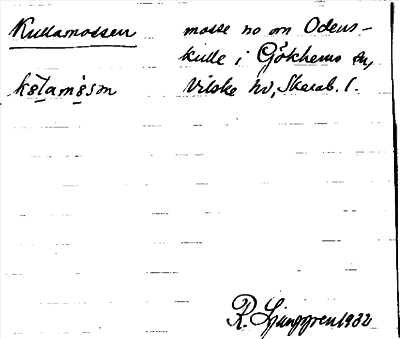 Kullamossen mosse no om Odens-
kulle i Gökhems sn,
Vilske hd, Skarab. l.
R. Ljunggren 1932